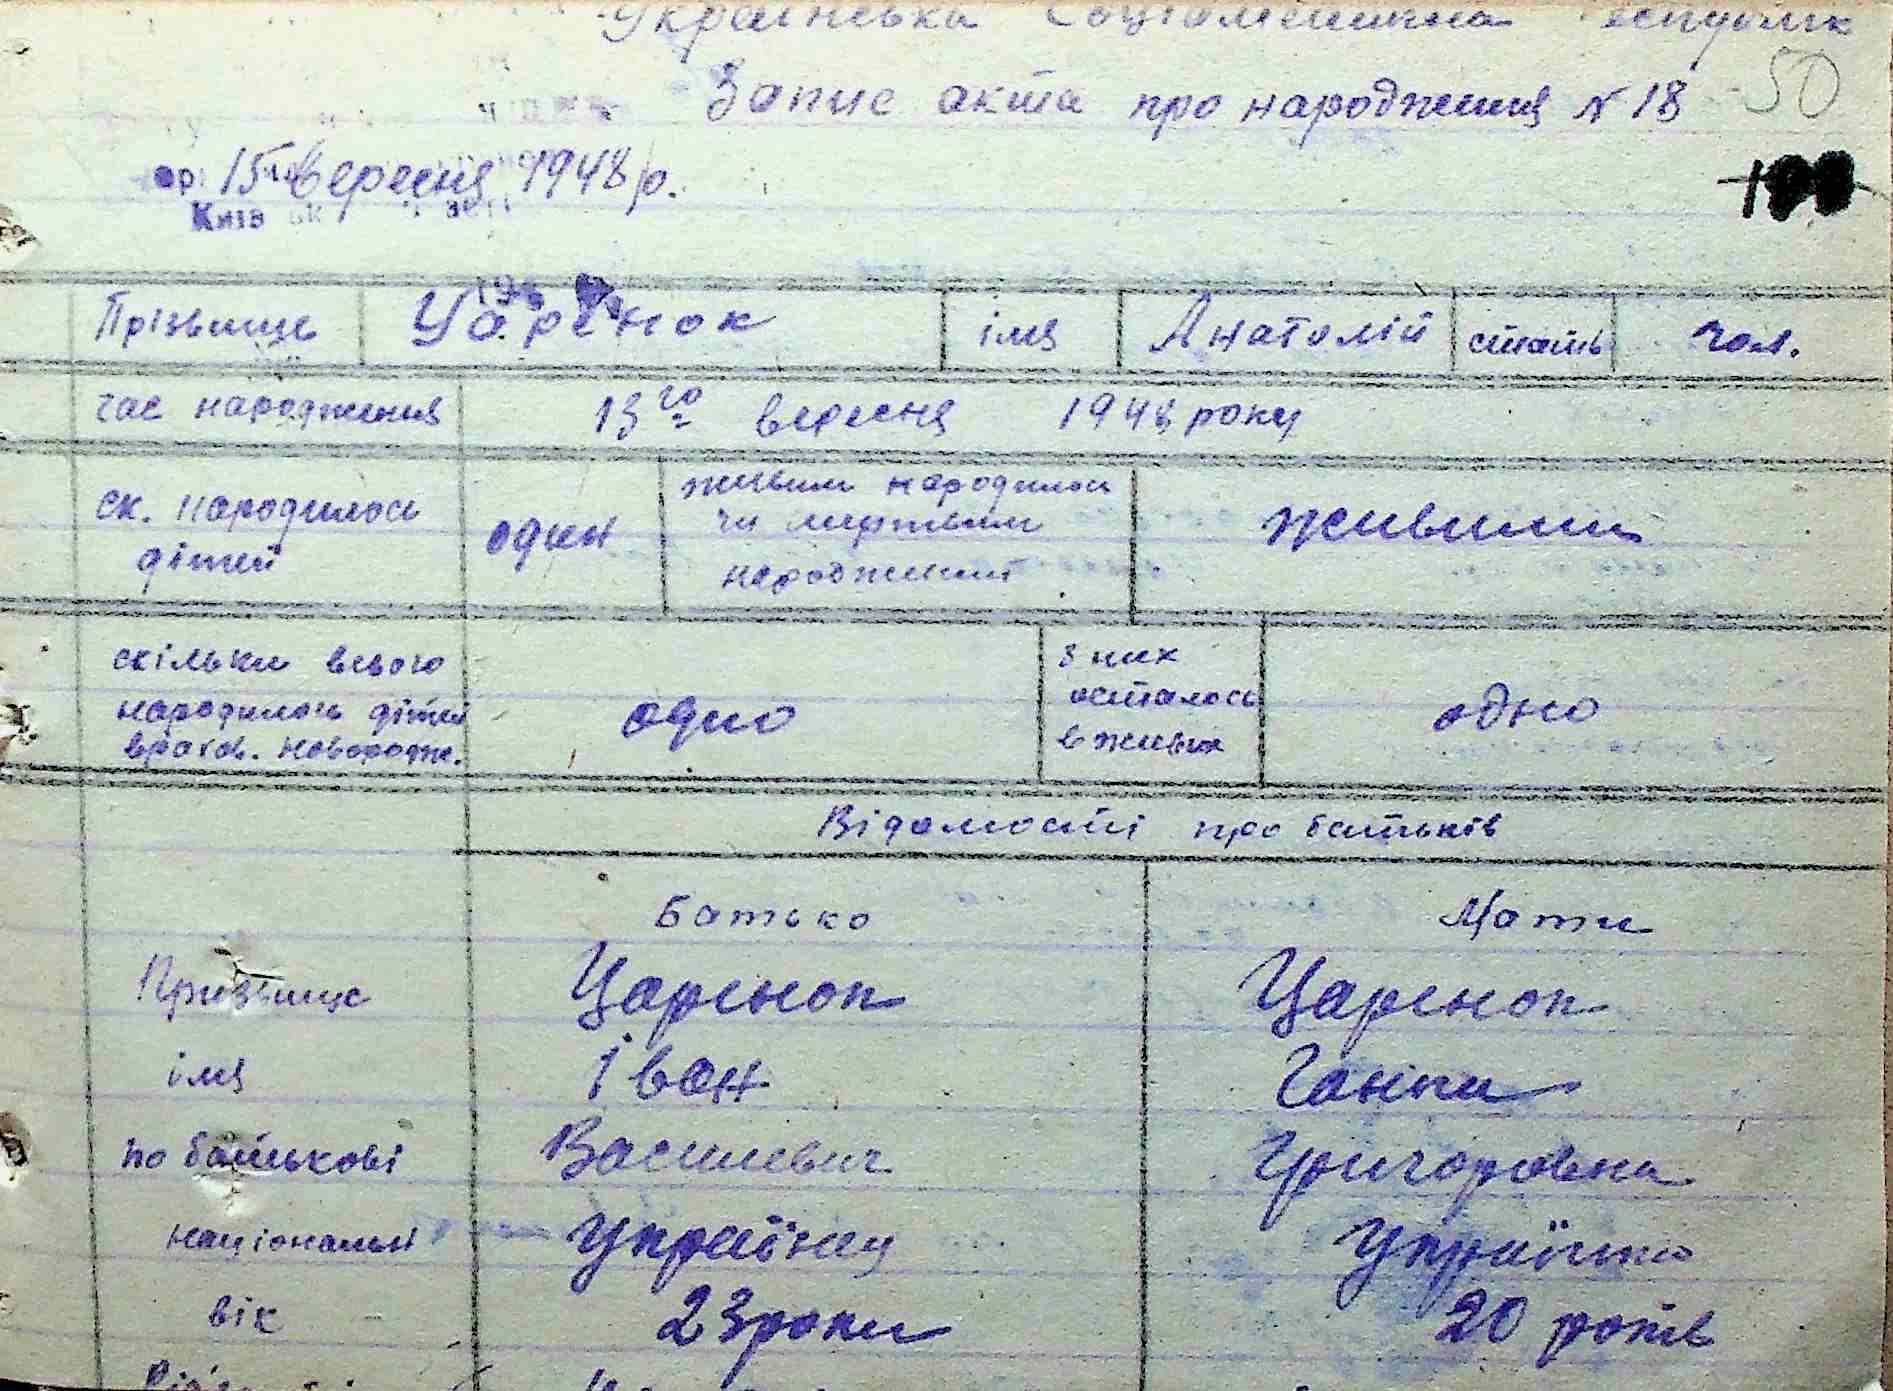 Українська Соціалістична
Запис акта про народження N 18
50
15 вересня 1948 р.
Київ
Прізвище Царенок імя Анатолій стать чол.
час народження 13го вересня 1948 року
ск. народилось дітей один живим народилось чи мертвим народженим живими
скільки всього народилось дітей врахов. новородж. одно з них осталось в живих одно
Відомості про батьків
Батько Мати
Призвище Царенок Царенок
імя Іван Ганна
по батькові Василевич Григоровна
національні Українец Українка
вік 23 роки 20 років